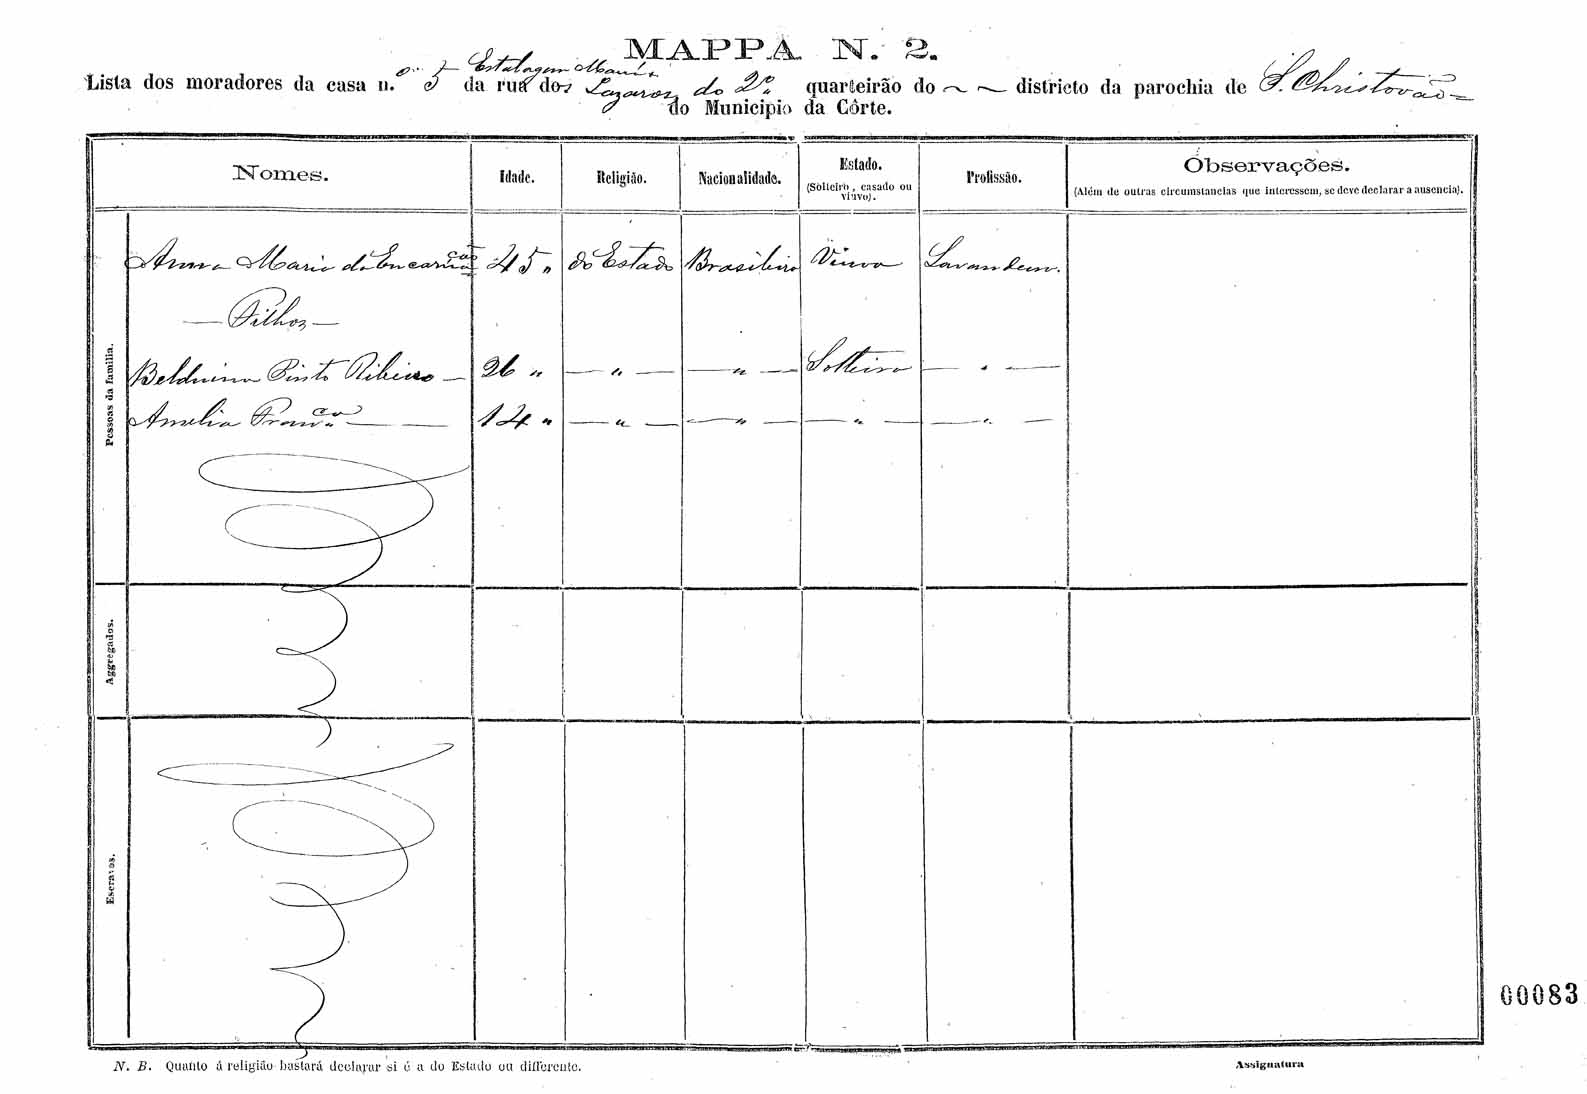 MAPPA N. 2.
Estalagem
Lista dos moradores da casa n.º 5 da rua dos Lazaros do 2º quarteirão do ~ ~ districto da parochia de S. Christovão
do Municipio da Côrte.
Nomes. Idade. Religião. Nacionalidade. Estado. Profissão. Observações.
(Solteiro, casado ou viuvo). (Além de outras circumstancias que interessem, se deve declarar a ausencia).
Pessoas da familia.
Anna Maria da Encarnação 45 " do Estado Brasileira Viuva Lavandeira
— Filhos —
Belduina Pinto Ribeiro — 26 " — " — — " — Solteira — " —
Amelia Franca — — 14 " — " — — " — — " — — " —
Aggregados.
Escravos.
00083
N. B. Quanto á religião bastará declarar si é a do Estado ou differente.
Assignatura